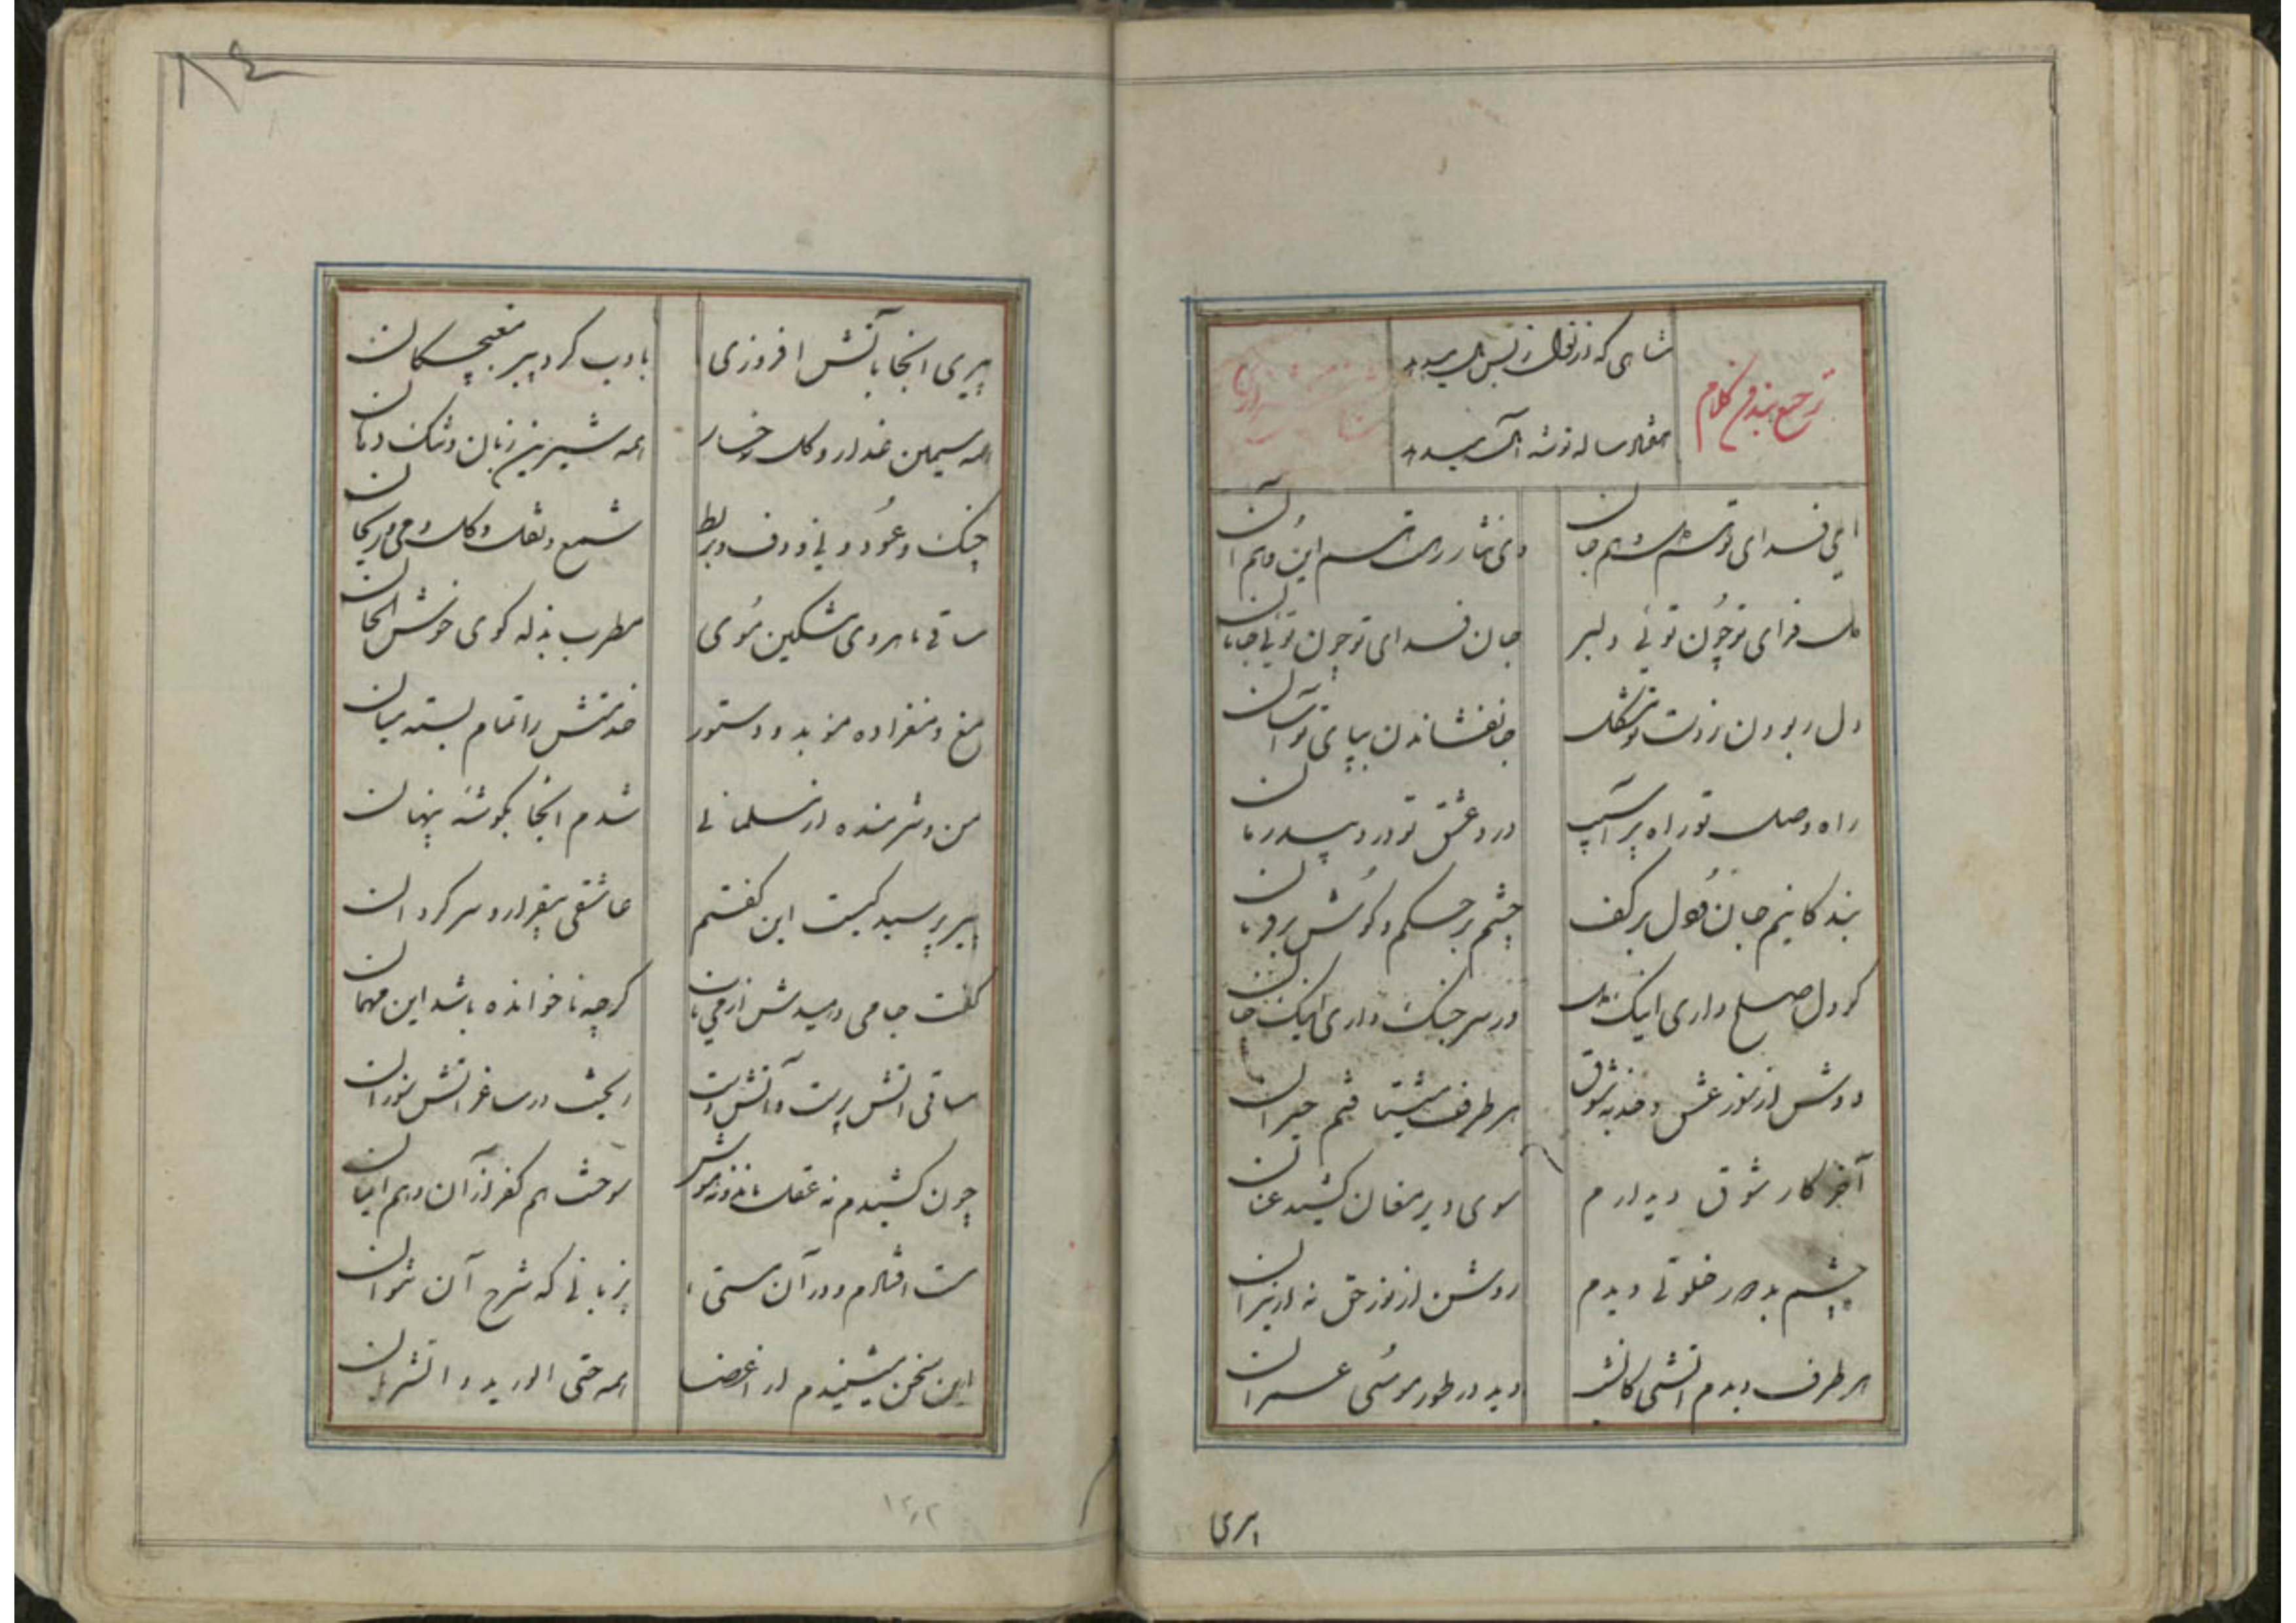 ترجیع بند من کلام
شاهی که
ای فدای تو هم دل و هم جان
وی نثار رهت هم این و هم آن
دل فدای تو چون توئی دلبر
جان فدای تو چون توئی جانان
دل ربودن ز دست تو مشکل
جانفشاندن بپای تو آسان
راه وصل تو راه پر آسیب
درد عشق تو درد بیدرمان
بندکانیم جان و دل بر کف
چشم بر حکم و کوش بر فرمان
کر دل صلح داری اینک دل
ور سر جنک داری اینک جان
دوش از سوز عشق و جذبه شوق
هر طرف میشتافتم حیران
آخر کار شوق دیدارم
سوی دیر مغان کشید عنان
چشم بد دور خلوتی دیدم
روشن از نور حق نه از نیران
هر طرف دیدم آتشی کانشب
دید در طور موسی عمران
پیری
پیری انجا بآتش افروزی
بادب کرد پیر مغبچکان
همه سیمین عذار و کل رخسار
همه شیرین زبان و تنک دهان
چنک و عود و نی و دف و بربط
شمع و نقل و کل و می و ریحان
ساقی ماهروی مشکین موی
مطرب بذله کوی خوش الحان
مغ و مغزاده موبد و دستور
خدمتش را تمام بسته میان
من شرمنده از مسلمانی
شدم انجا بکوشه پنهان
پیر پرسید کیست این کفتم
عاشقی بیقرار و سرکردان
کفت جامی دهیدش از می ناب
کرچه ناخوانده باشد این مهمان
ساقی آتش پرست و آتش دست
ریخت در ساغر آتش سوزان
چون کشیدم نه عقل ماند و نه هوش
سوخت هم کفر از آن و هم ایمان
مست افتادم و در آن مستی
بزبانی که شرح آن نتوان
این سخن میشنیدم از اعضا
همه حتی الورید و الشریان
۱۲۲